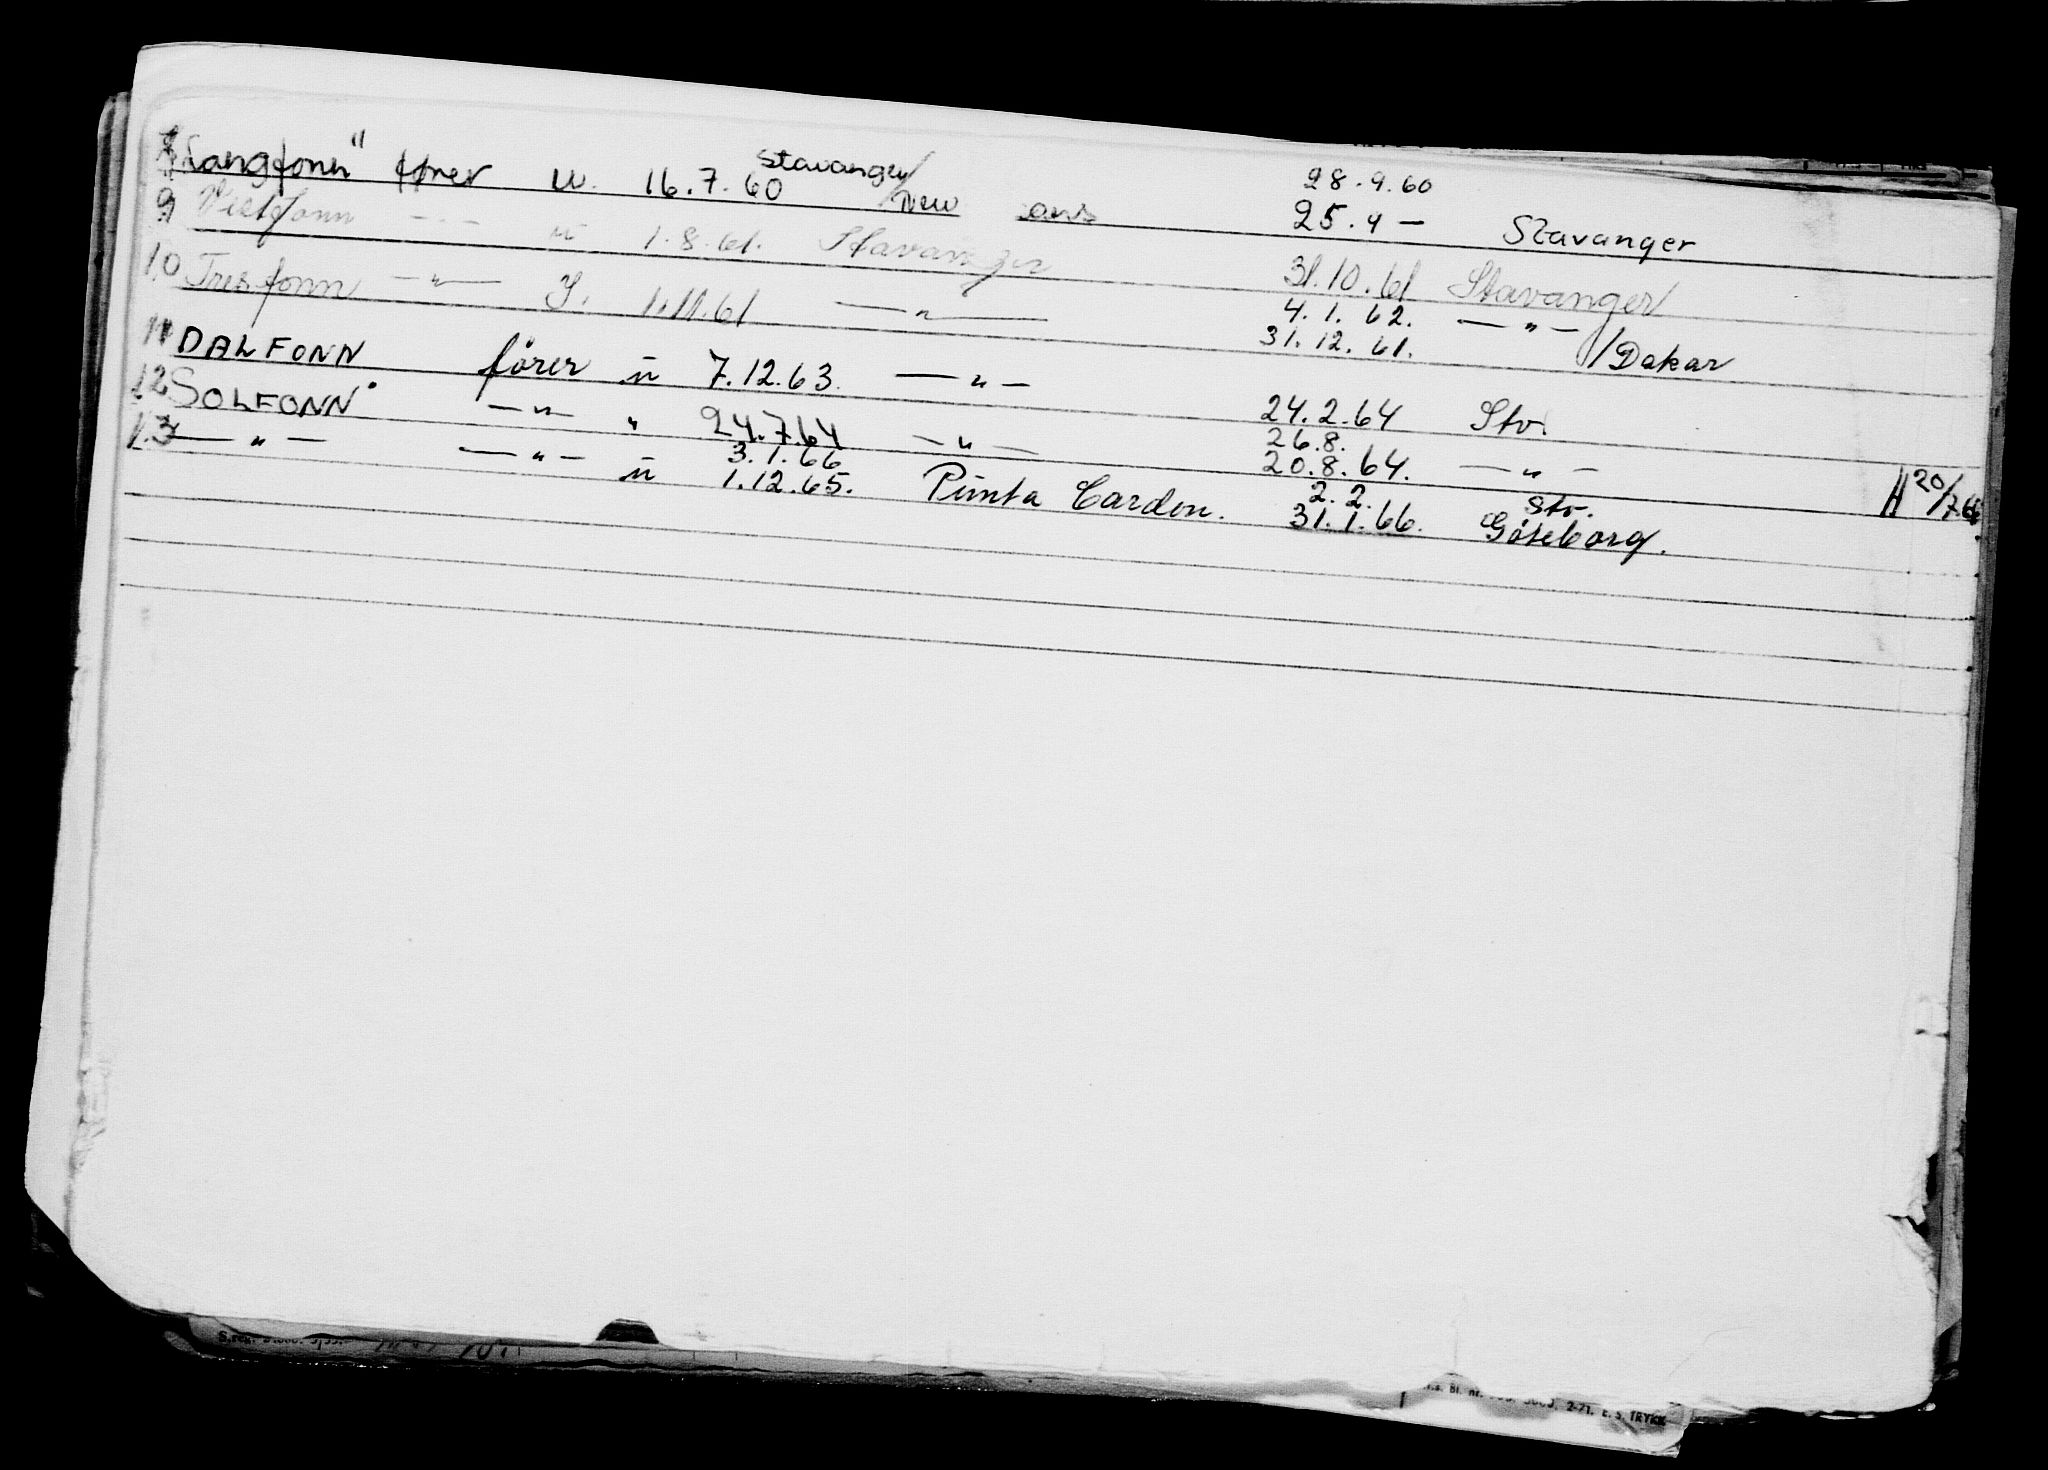 "Langfonn" fører u. 16.7.60 Stavanger/New ans 28.9.60
25.4 — Stavanger
9 Vestfonn — " — u 1.8.61. Stavanger 31.10.61 Stavanger
10 Tresfonn — " — I. 1.11.61 — " — 4.1.62. — " —
31.12.61. /Dakar
11 DALFONN fører u 7.12.63. — " — 24.2.64 Stv.
12 SOLFONN — " — " 24.7.64 — " — 26.8.
20.8.64. — " —
13 — " — — " — u 3.1.66
1.12.65. Punta Cardon. 2.2. Stv.
31.1.66. Göteborg. H 20/7.66
S.reg.
Bl. nr. 2-71. E. S. TRYKK